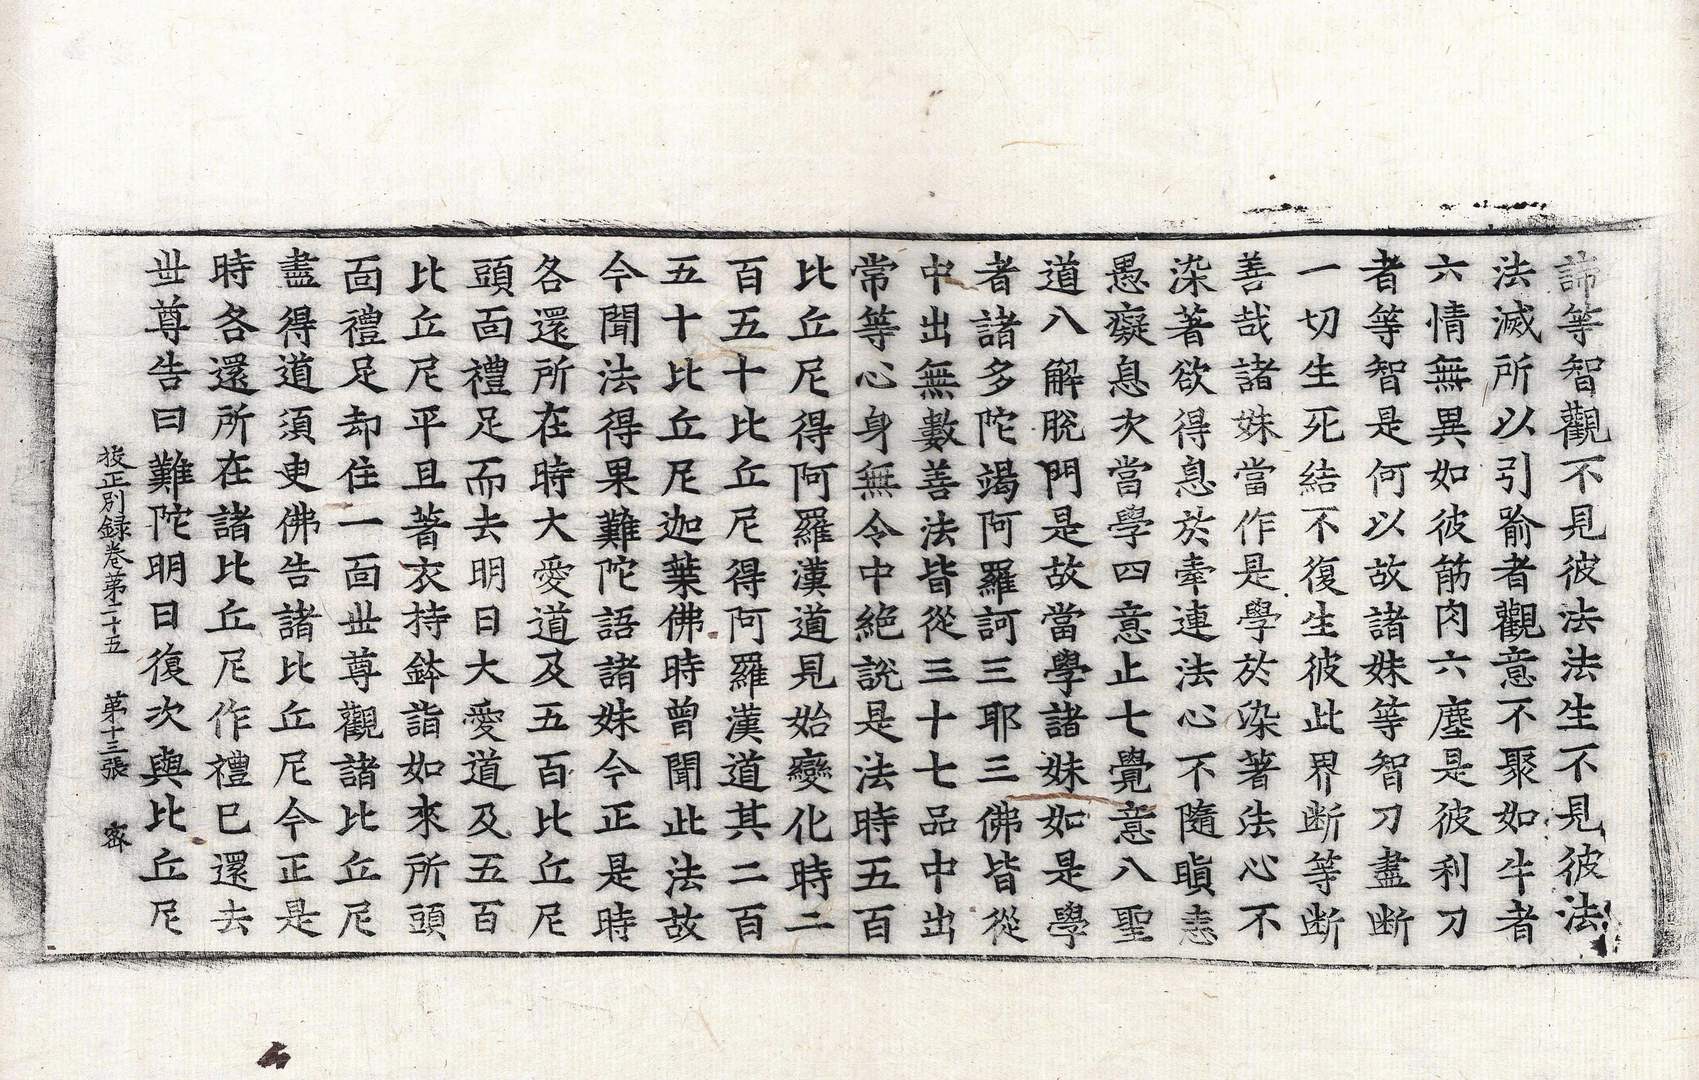 諦等智觀不見彼法法生不見彼法
法滅所以引喻者觀意不聚如牛者
六情無異如彼筋肉六塵是彼利刀
者等智是何以故諸姝等智刀盡断
一切生死結不復生彼此界断等断
善哉諸姝當作是學於染著法心不
染著欲得息於牽連法心不隨瞋恚
愚癡息次當學四意止七覺意八聖
道八解脫門是故當學諸姝如是學
者諸多陀竭阿羅訶三耶三佛皆從
中出無數善法皆從三十七品中出
常等心身無令中絶說是法時五百
比丘尼得阿羅漢道見始變化時二
百五十比丘尼得阿羅漢道其二百
五十比丘尼迦葉佛時曾聞此法故
今聞法得果難陀語諸姝今正是時
各還所在時大愛道及五百比丘尼
頭面禮足而去明日大愛道及五百
比丘尼平旦著衣持鉢詣如來所頭
面禮足却住一面世尊觀諸比丘尼
盡得道須臾佛告諸比丘尼今正是
時各還所在諸比丘尼作禮已還去
世尊告曰難陀明日復次與比丘尼
挍正別録卷第二十五 第十三張 宻